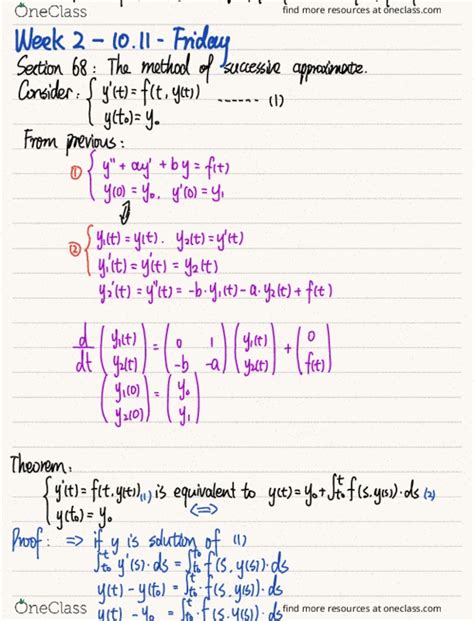 OneClass
find more resources at oneclass.com
Week 2 - 10.11 - Friday
Section 68: The method of successive approximate.
Consider: { y'(t) = f(t, y(t)) ------ (1)
y(t₀) = y₀
From previous:
① { y'' + ay' + by = f(t)
y(0) = y₀, y'(0) = y₁
⇕
② { y₁(t) = y(t). y₂(t) = y'(t)
y₁'(t) = y'(t) = y₂(t)
y₂'(t) = y''(t) = -b·y₁(t) - a·y₂(t) + f(t)
d/dt (y₁(t) y₂(t)) = (0 1 -b -a) (y₁(t) y₂(t)) + (0 f(t))
(y₁(0) y₂(0)) = (y₀ y₁)
Theorem:
{ y'(t) = f(t, y(t)) (1) is equivalent to y(t) = y₀ + ∫ₜ₀ᵗ f(s, y(s))·ds (2)
y(t₀) = y₀ <=>
Proof: => if y is solution of (1)
∫ₜ₀ᵗ y'(s)·ds = ∫ₜ₀ᵗ f(s, y(s))·ds
y(t) - y(t₀) = ∫ₜ₀ᵗ f(s, y(s))·ds
y(t) - y₀ = ∫ₜ₀ᵗ f(s, y(s))·ds
OneClass
find more resources at oneclass.com